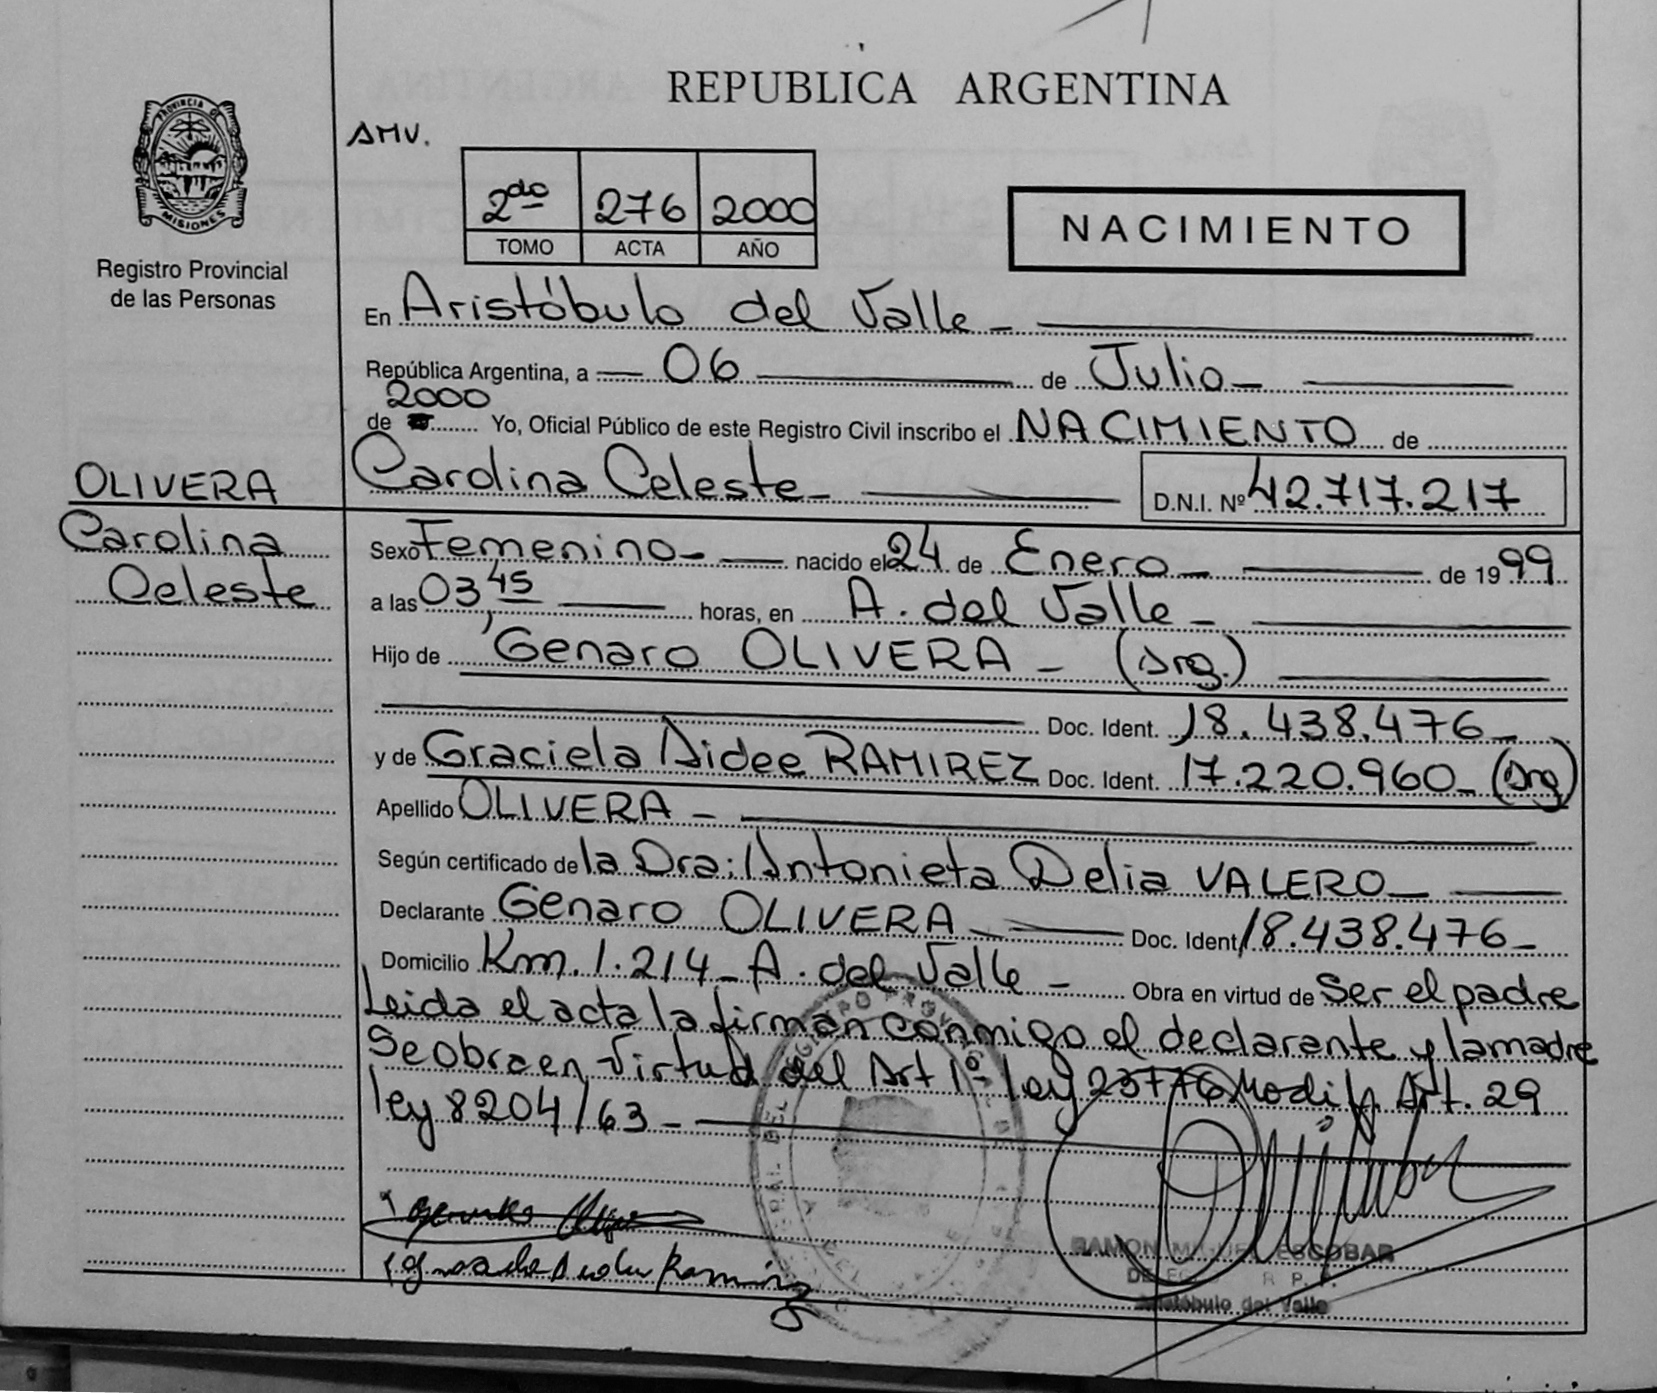 REPUBLICA ARGENTINA
PROVINCIA DE
MISIONES
Registro Provincial
de las Personas
AMV.
2do 276 2000
TOMO ACTA AÑO
NACIMIENTO
En Aristóbulo del Valle
República Argentina, a 06 de Julio
2000
de Yo, Oficial Público de este Registro Civil inscribo el NACIMIENTO de
OLIVERA
Carolina Celeste D.N.I. Nº 42.717.217
Carolina
Celeste
Sexo Femenino nacido el 24 de Enero de 1999
a las 03,45 horas, en A. del Valle
Hijo de Genaro OLIVERA - (Arg.)
Doc. Ident. 18.438.476
y de Graciela Aidee RAMIREZ Doc. Ident. 17.220.960 (Arg)
Apellido OLIVERA
Según certificado de la Dra: Antonieta Delia VALERO
Declarante Genaro OLIVERA Doc. Ident 18.438.476
Domicilio Km. 1.214 - A. del Valle Obra en virtud de Ser el padre
Leida el acta la firman conmigo el declarante y la madre
Se obra en Virtud del Art 1º ley 23776 Modif. Art. 29
ley 8204/63
RAMON MIGUEL ESCOBAR
R. P. P.
Aristóbulo del Valle